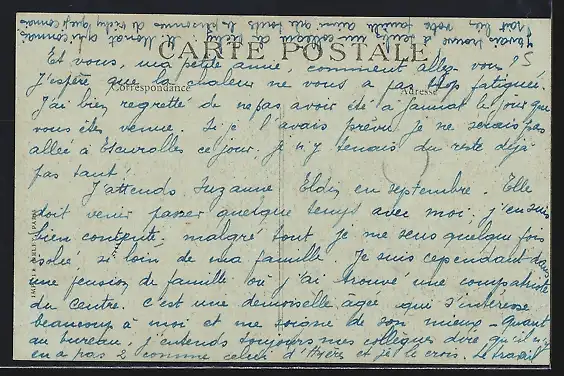 CARTE POSTALE
Correspondance
Adresse
Et vous, ma petite amie, comment allez vous ?
J'espère que la chaleur ne vous a pas trop fatiguée.
J'ai bien regretté de ne pas avoir été à Jannat le jour que
vous êtes venue. Si je l'avais prévu je ne serais pas
allée à Escurolles ce jour. Je n'y tenais du reste déjà
pas tant !
J'attends Suzanne Eldin en septembre. Elle
doit venir passer quelque temps avec moi, j'en suis
bien contente, malgré tout je me sens quelque fois
isolée, si loin de ma famille. Je suis cependant dans
une pension de famille où j'ai trouvé une compatriote
du Centre. C'est une demoiselle âgée qui s'intéresse
beaucoup à moi et me soigne de son mieux - Quant
au bureau, j'entends toujours mes collègues dire qu'il n'y
en a pas 2 comme celui d'Hyères et je le crois. Le travail